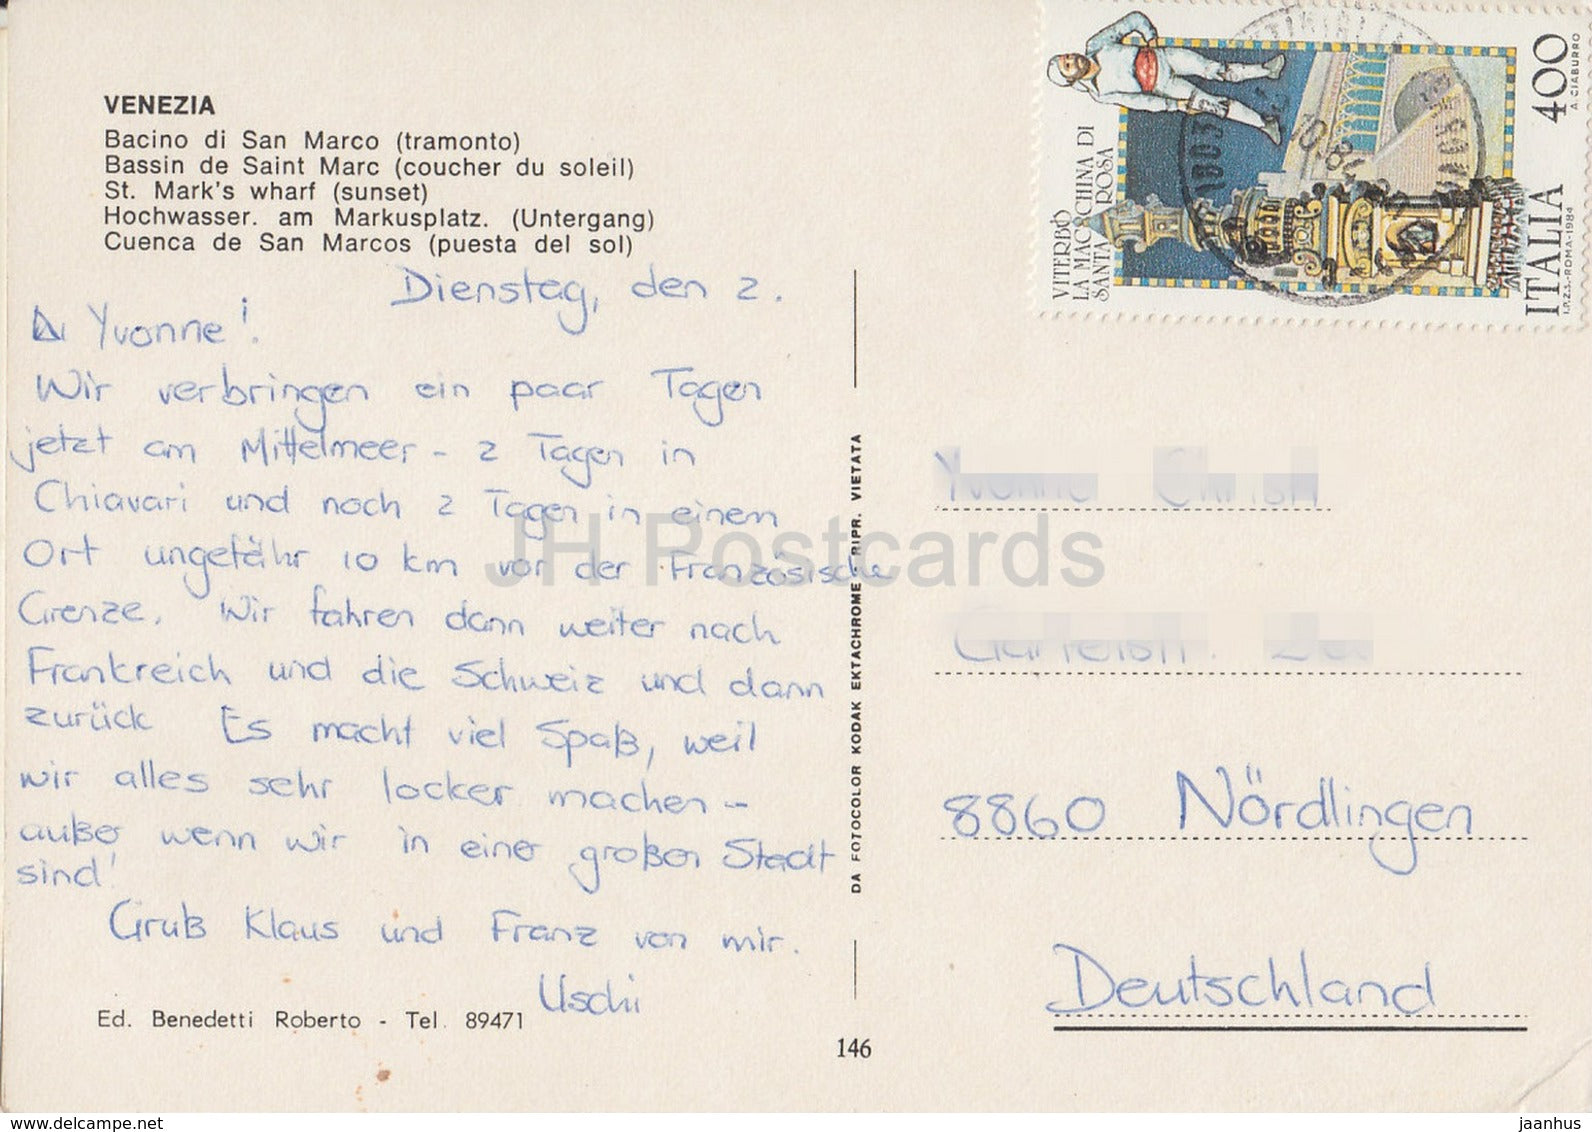 VENEZIA
Bacino di San Marco (tramonto)
Bassin de Saint Marc (coucher du soleil)
St. Mark's wharf (sunset)
Hochwasser. am Markusplatz. (Untergang)
Cuenca de San Marcos (puesta del sol)
Dienstag, den 2.
Yvonne!
Wir verbringen ein paar Tagen
jetzt am Mittelmeer - 2 Tagen in
Chiavari und noch 2 Tagen in einem
Ort ungefähr 10 km vor der Französische
Grenze. Wir fahren dann weiter nach
Frankreich und die Schweiz und dann
zurück Es macht viel Spaß, weil
wir alles sehr locker machen -
außer wenn wir in einer großen Stadt
sind!
Gruß Klaus und Franz von mir.
Uschi
Ed. Benedetti Roberto - Tel. 89471
DA FOTOCOLOR KODAK EKTACHROME RIPR. VIETATA
146
VITERBO
LA MACCHINA DI
SANTA ROSA
ITALIA 400
I.P.Z.S.-ROMA-1984 A. CIABURRO
8860 Nördlingen
Deutschland
JH Postcards
www.delcampe.net
jaanhus